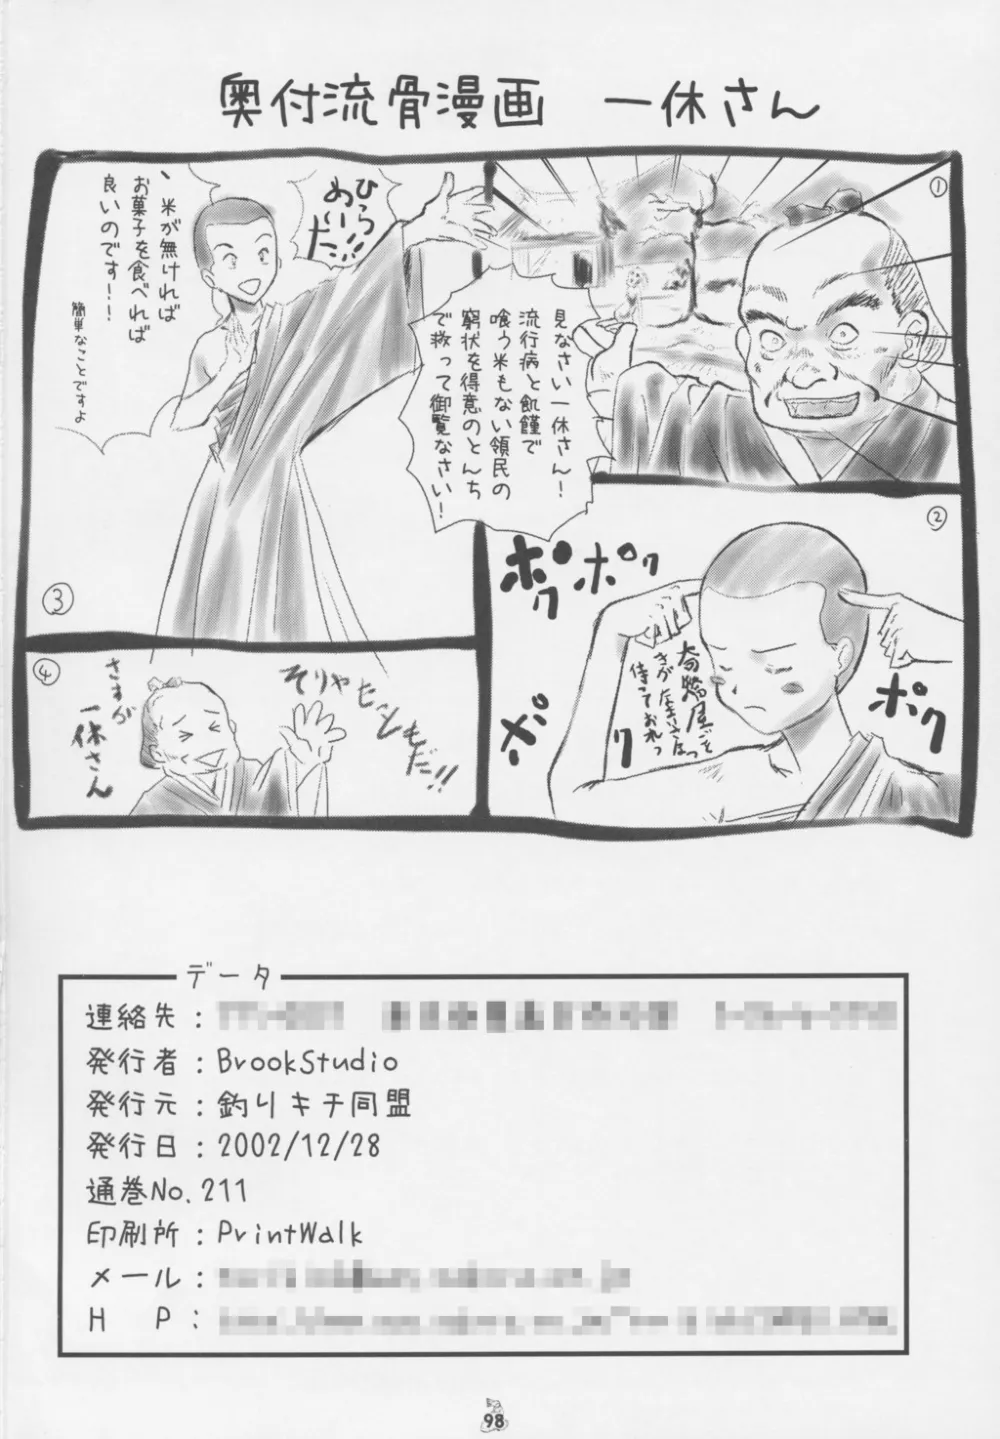 奥付流骨漫画　一休さん
①
見なさい一休さん!
流行病と飢饉で
喰う米もない領民の
窮状を得意のとんち
で救って御覧なさい!
②
ポク
ポク
ポク
ポク
待っておれっ
③
ひらっ!!
めいた!!
、米が無ければ
お菓子を食べれば
良いのです!!
簡単なことですよ
④
そりゃとんちもだ!!
さすが
一休さん
データ
連絡先:
発行者:BrookStudio
発行元:釣りキチ同盟
発行日:2002/12/28
通巻No.211
印刷所:PrintWalk
メール:
H　P:
98